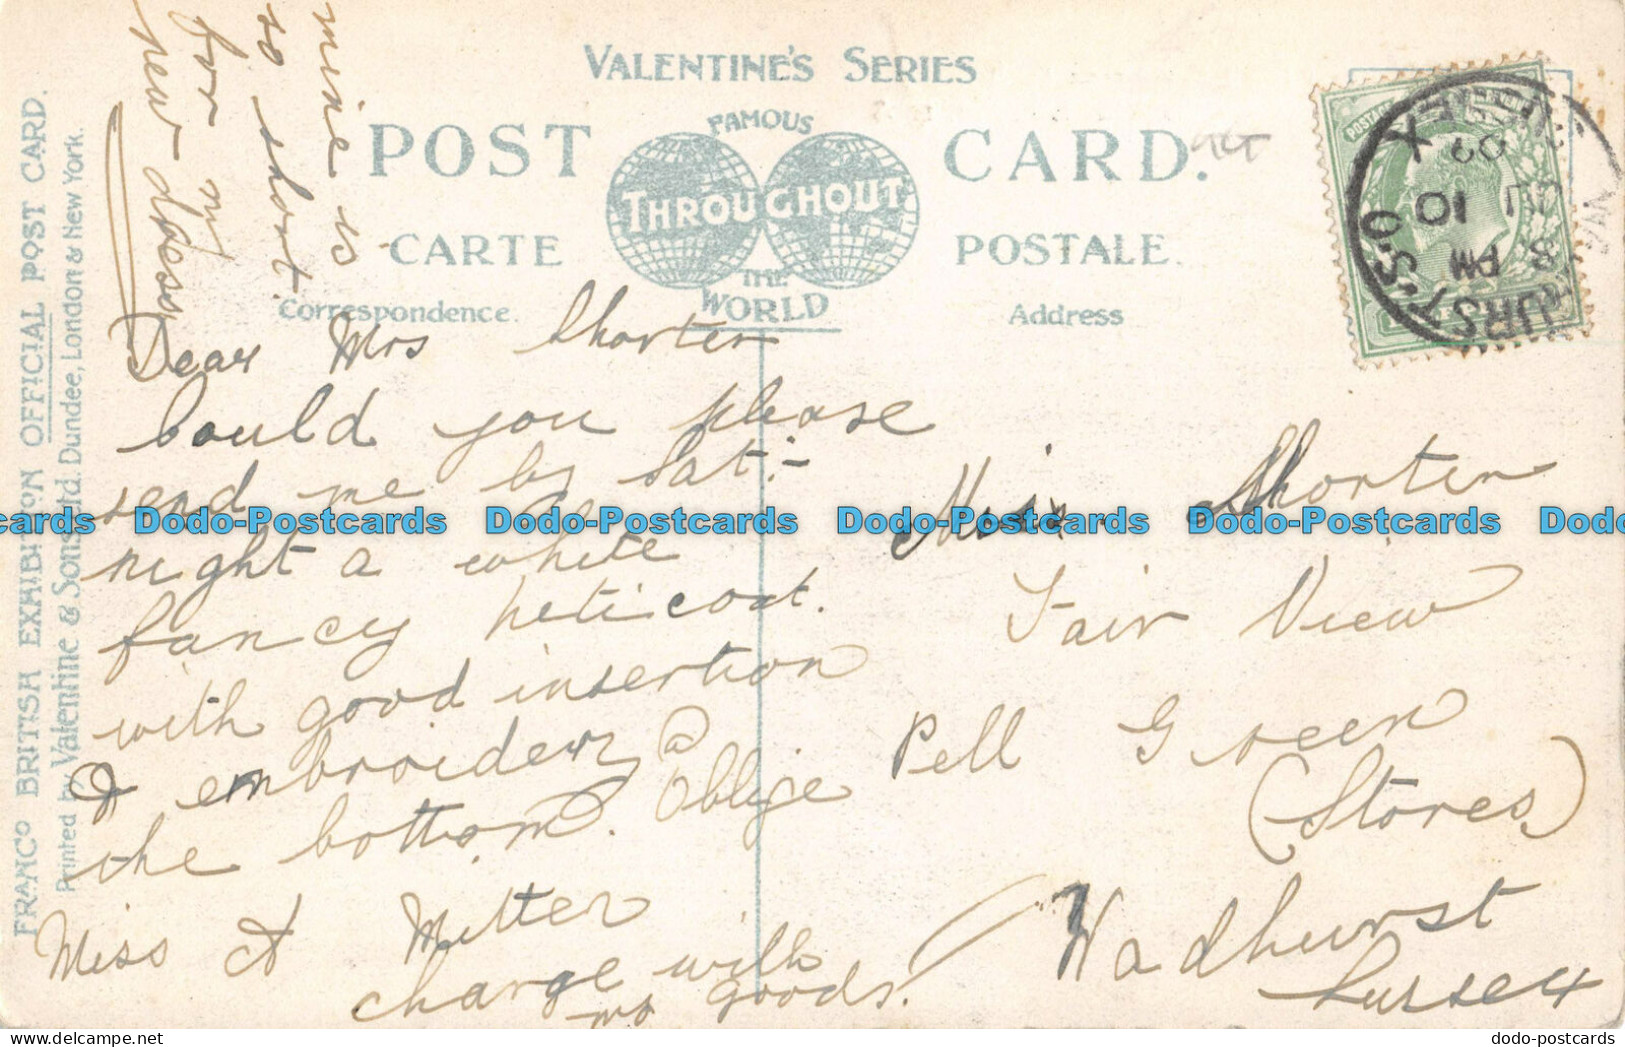 VALENTINE'S SERIES
POST CARD.
FAMOUS
THROUGHOUT
THE
WORLD
CARTE POSTALE.
Correspondence.
Address
FRANCO BRITISH EXHIBITION OFFICIAL POST CARD.
Printed by Valentine & Sons Ltd. Dundee, London & New York.
mine is
so short
for my
new dress
Dear Mrs Shorter
Could you please
send me by Sat:-
night a white
fancy petticoat.
with good insertion
& embroidery @
the bottom. Oblige
Miss A Mitten
charge with
goods.
Miss Shorter
Fair View
Pell Green
(Stores)
Wadhurst
Sussex
WADHURST S.O.
SUSSEX
3 PM
JU 10
09
Dodo-Postcards Dodo-Postcards Dodo-Postcards Dodo-Postcards
dodo-postcards